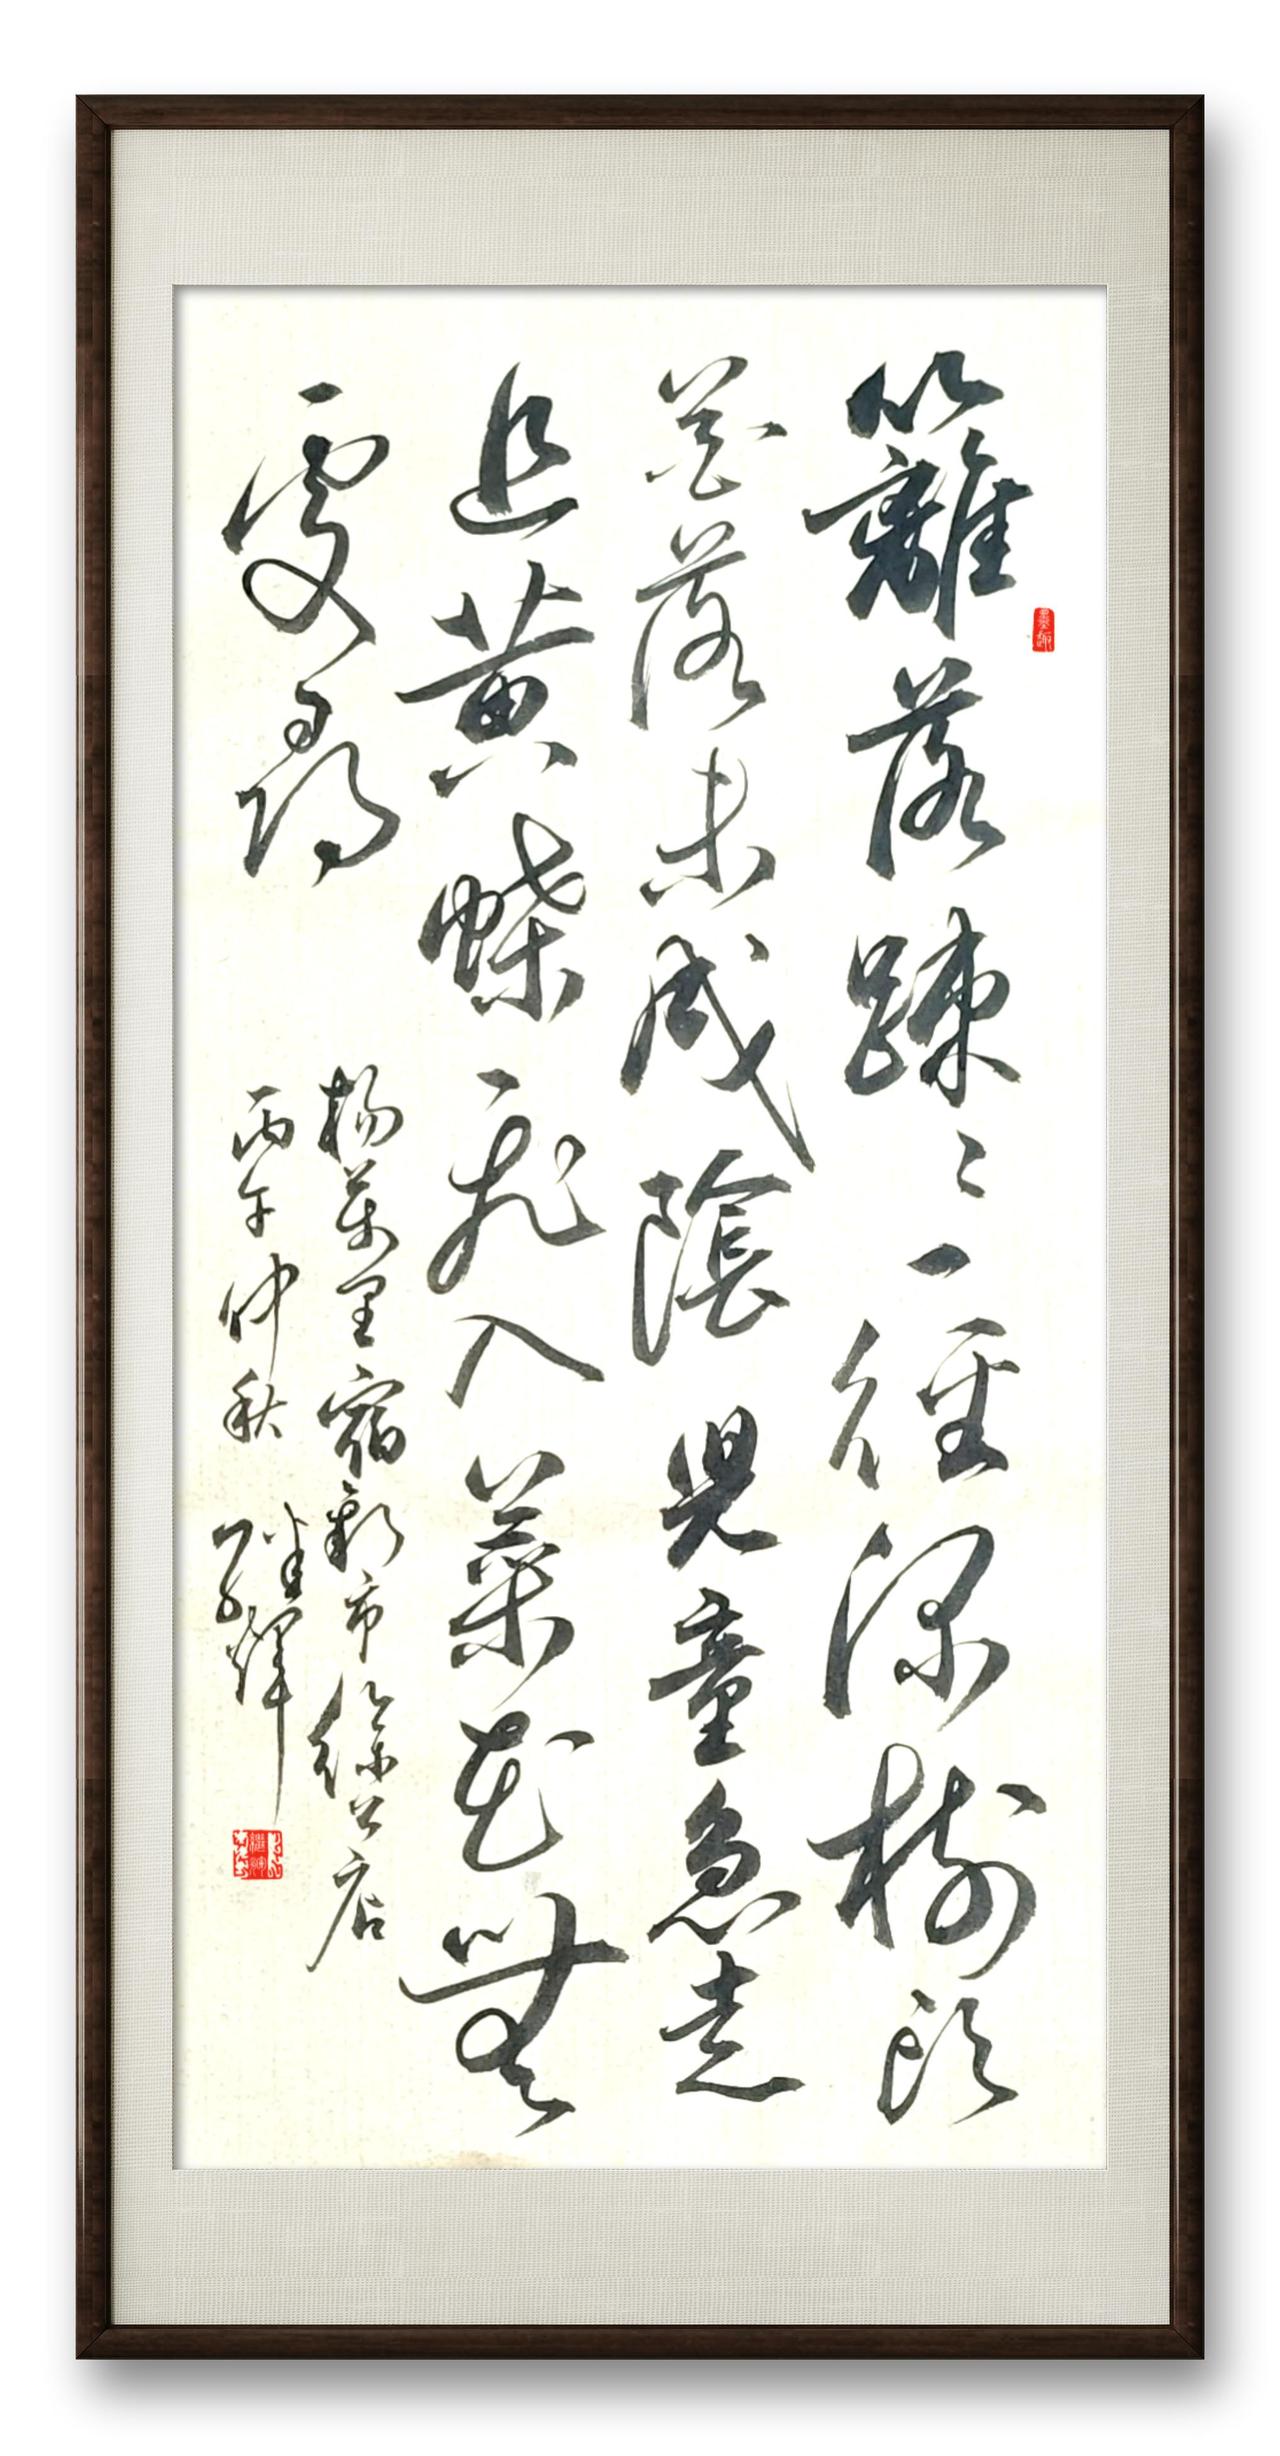 籬落疎〻一徑深樹頭
花落未成陰兒童急走
追黃蝶飛入菜花無
處尋
楊萬里宿新市徐公店
丙午仲秋 輝
墨趣